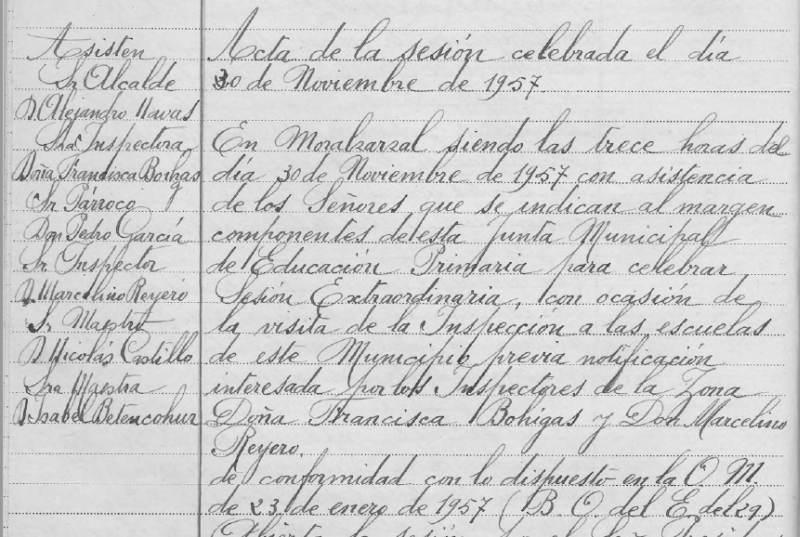 Asisten
Sr Alcalde
D. Alejandro Navas
Sra Inspectora
Doña Francisca Bohigas
Sr Párroco
Don Pedro García
Sr Inspector
D. Marcelino Reyero
Sr Maestro
D. Nicolás Castillo
Sra Maestra
D. Isabel Betencohur
Acta de la sesión celebrada el día
30 de Noviembre de 1957
En Moralzarzal siendo las trece horas del
día 30 de Noviembre de 1957 con asistencia
de los Señores que se indican al margen
componentes de esta Junta Municipal
de Educación Primaria para celebrar
Sesión Extraordinaria, con ocasión de
la visita de la Inspección a las escuelas
de este Municipio previa notificación
interesada por los Inspectores de la Zona
Doña Francisca Bohigas y Don Marcelino
Reyero.
de conformidad con lo dispuesto en la O. M.
de 23 de enero de 1957 (B. O. del E. del 29)
Abierta la sesión por el